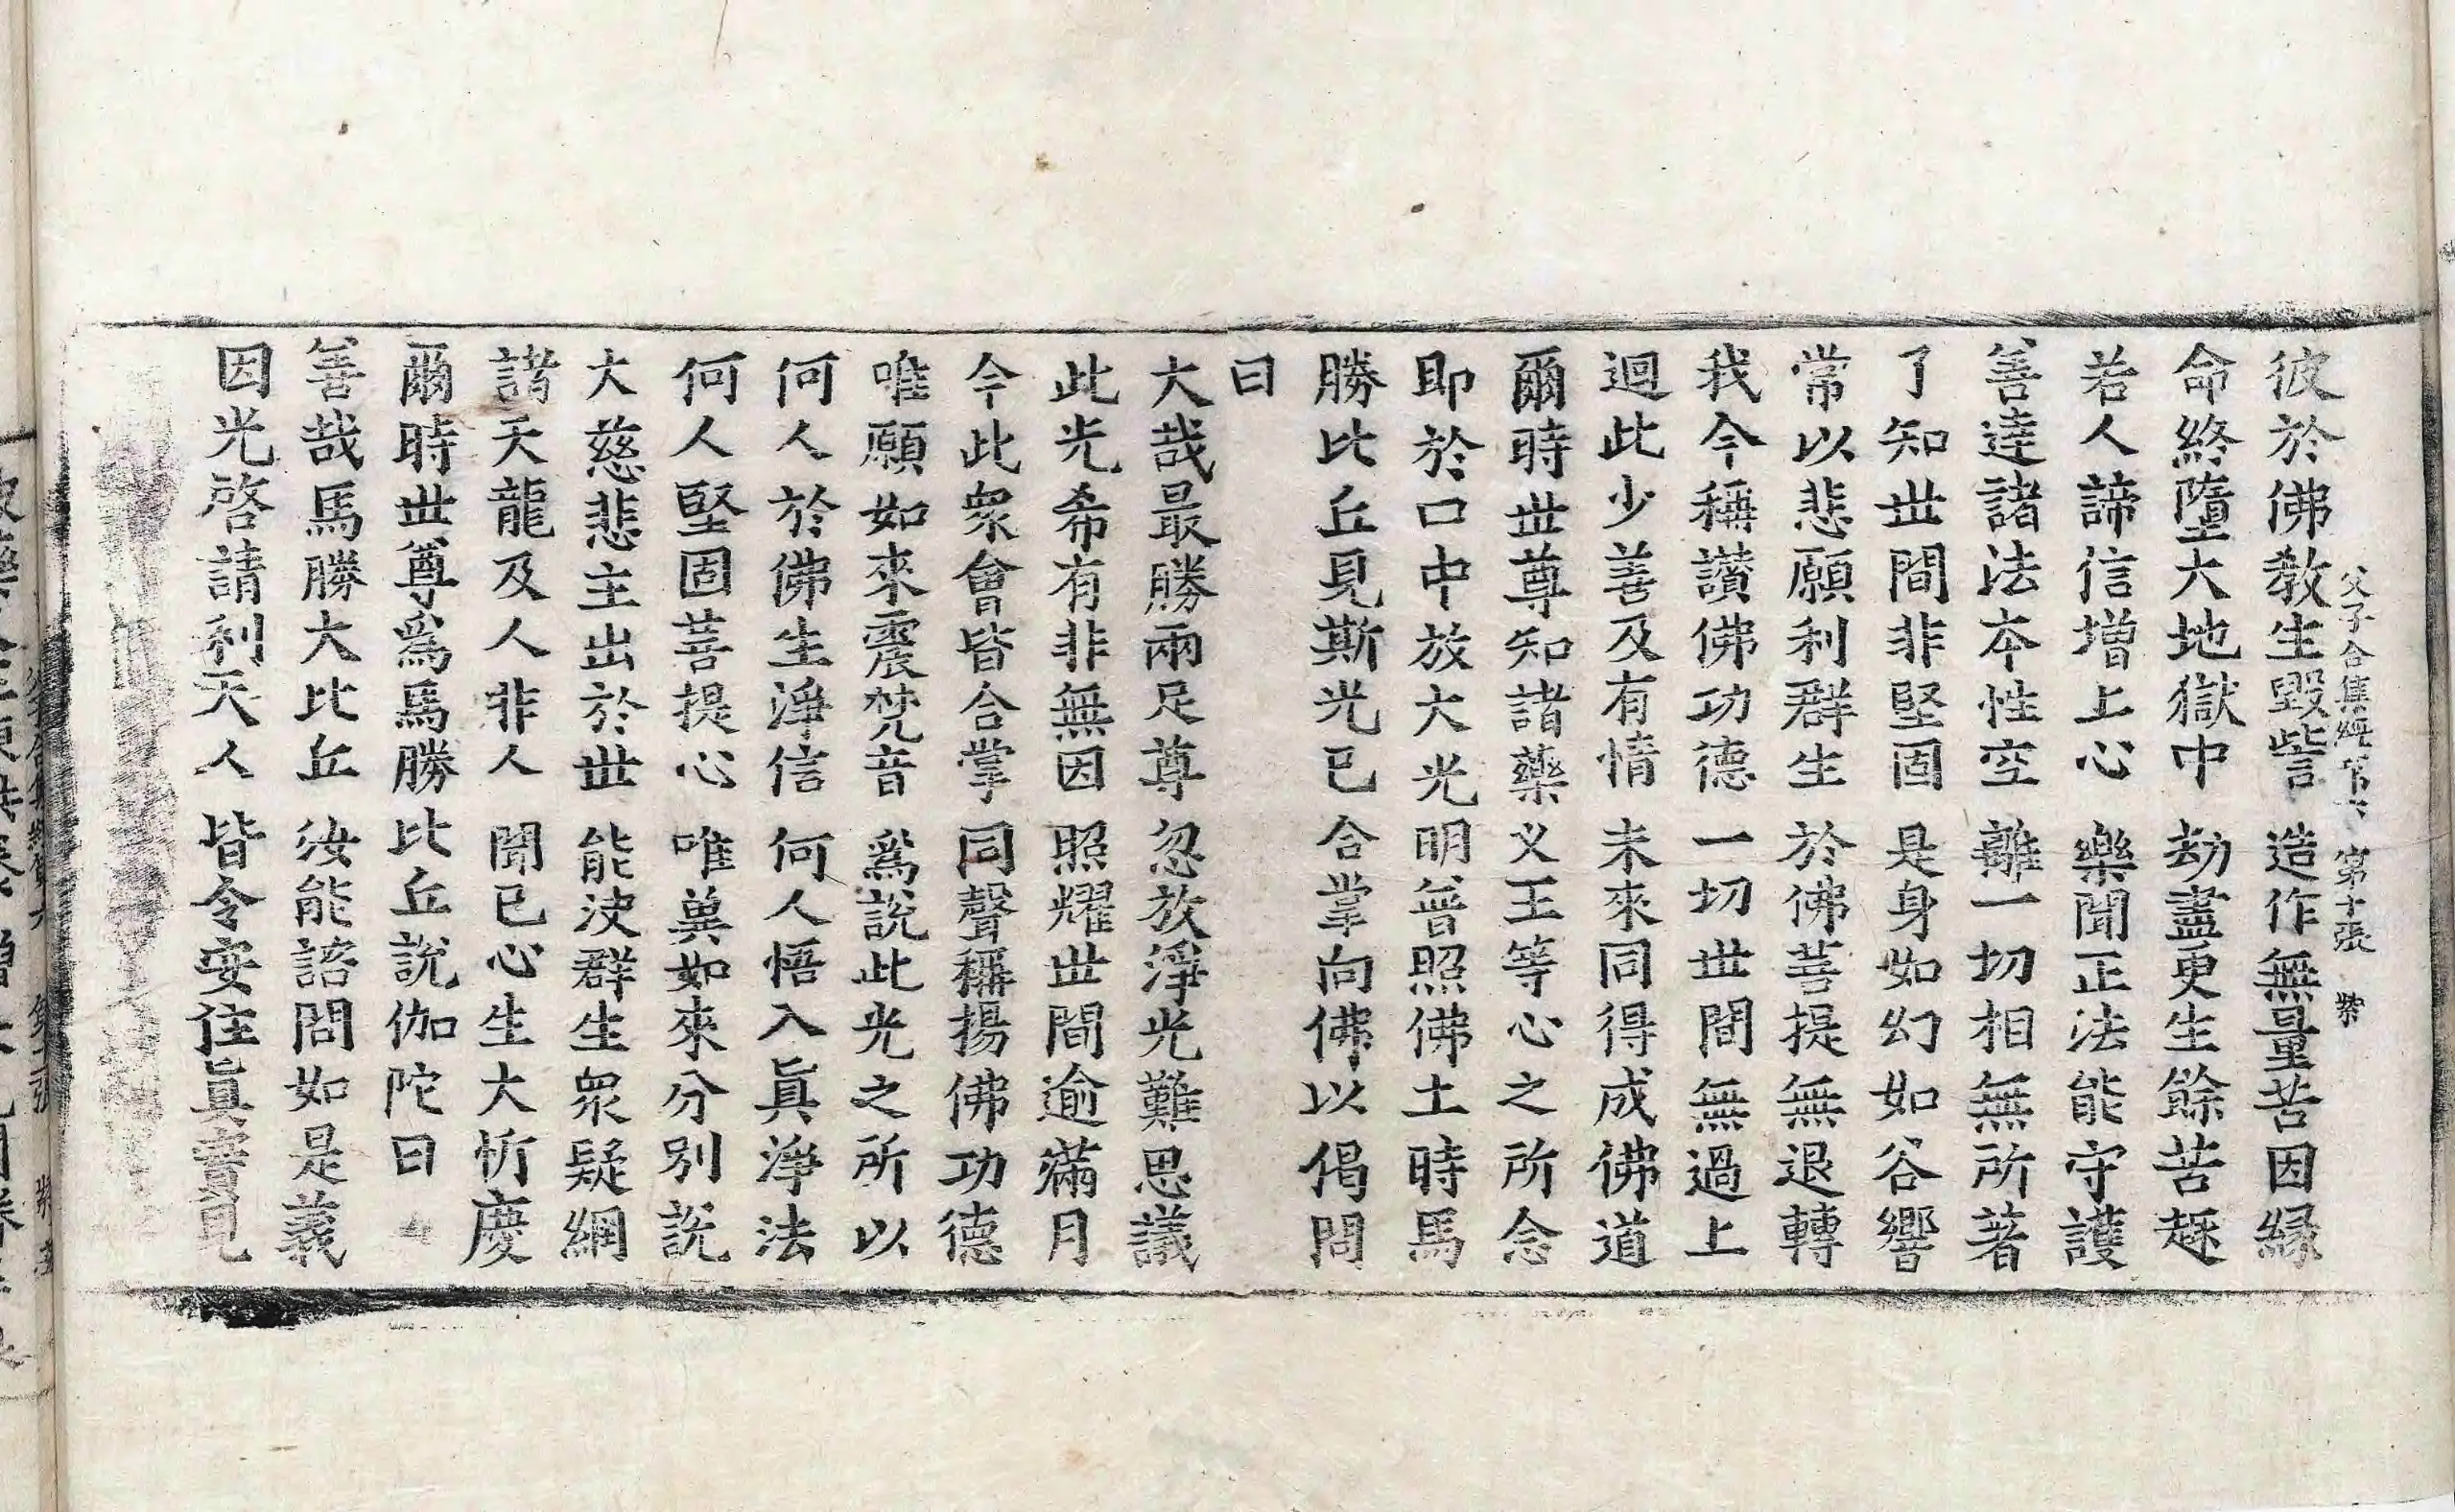 父子合集經第六 第十張 紫
彼於佛教生毀訾 造作無量苦因緣
命終墮大地獄中 劫盡更生餘苦趣
若人諦信增上心 樂聞正法能守護
善達諸法本性空 離一切相無所著
了知世間非堅固 是身如幻如谷響
常以悲願利群生 於佛菩提無退轉
我今稱讚佛功德 一切世間無過上
迴此少善及有情 未來同得成佛道
爾時世尊知諸藥叉王等心之所念
即於口中放大光明普照佛土時馬
勝比丘見斯光已合掌向佛以偈問
曰
大哉最勝兩足尊 忽放淨光難思議
此光希有非無因 照耀世間逾滿月
今此眾會皆合掌 同聲稱揚佛功德
唯願如來震梵音 為說此光之所以
何人於佛生淨信 何人悟入真淨法
何人堅固菩提心 唯兾如來分別說
大慈悲主出於世 能決群生眾疑網
諸天龍及人非人 聞已心生大忻慶
爾時世尊為馬勝比丘說伽陀曰
善哉馬勝大比丘 汝能諮問如是義
因光啓請利天人 皆令安住真實見